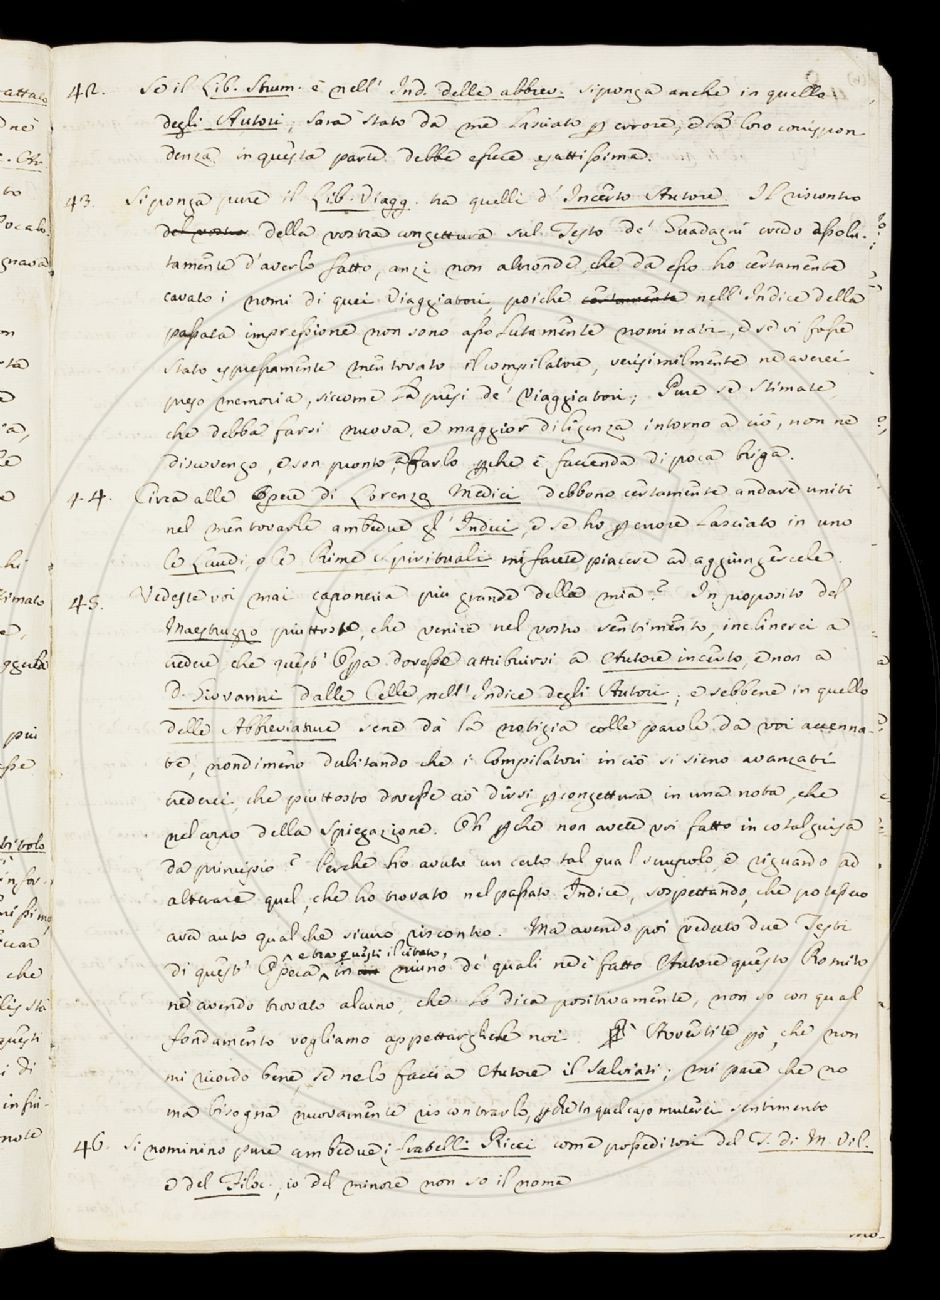 42. Se il Lib. Strum. è nell' Ind. delle abbrev. si ponga anche in quello
degli Autori, sarà stato da me lasciato per errore, e la loro corrispon
denza in questa parte debbe essere esattissima.
43. Si ponga pure il Lib. Viagg. tra quelli d' Incerto Autore. Il riscontro
del vostro della vostra congettura sul Testo de' Guadagni credo assolu-
tamente d'averlo fatto, anzi non altronde, che da esso ho certamente
cavato i nomi di quei Viaggiatori, poiche certamente nell' Indice della
passata impressione non sono assolutamente nominati, e se vi fosse
stato espressamente mentovato il compilatore, verisimilmente ne averei
preso memoria, siccome la presi de' Viaggiatori; Pure se stimate,
che debba farsi nuova, e maggior diligenza intorno a ciò, non ne
disconvengo, e son pronto a farlo perche è faccenda di poca briga.
44. Circa alle Opere di Lorenzo Medici debbono certamente andare uniti
nel mentovarle ambedue gl' Indici, e se ho per errore lasciato in uno
le Laudi, o le Rime Spirituali mi farete piacere ad aggiungercele.
45. Vedeste voi mai caponeria piu grande della mia? In proposito del
Maestruzzo piuttosto, che venire nel vostro sentimento, inclinerei a
credere che quest' Opera dovesse attribuirsi a Autore incerto, e non a
D. Giovanni dalle Celle, nell' Indice degli Autori; e sebbene in quello
delle Abbreviature sene dà la notizia colle parole da voi accenna-
te, nondimeno dubitando che i Compilatori in ciò si sieno avanzati
crederei, che piuttosto dovesse ciò dirsi per congettura in una nota, che
nel corpo della spiegazione. Oh perche non avete voi fatto in cotal guisa
da principio? Perche ho avuto un certo tal qual scrupolo, e riguardo ad
alterare quel, che ho trovato nel passato Indice, sospettando, che potessero
aver auto qualche sicuro riscontro. Ma avendo poi veduto due Testi
di quest' Opera, e tra questi il citato, in niuno de' quali ne è fatto Autore questo Romito
nè avendo trovato alcuno, che lo dica positivamente, non so con qual
fondamento vogliamo appettarglielo noi. Avvertite però, che non
mi ricordo bene, se ne lo faccia Autore il Salviati; mi pare che no
ma bisogna nuovamente riscontrarlo, perche in quel caso muterei sentimento
46. Si nominino pure ambedue i fratelli Ricci come posseditori del T. di M. Vil.
e del Filoc.; io del minore non so il nome